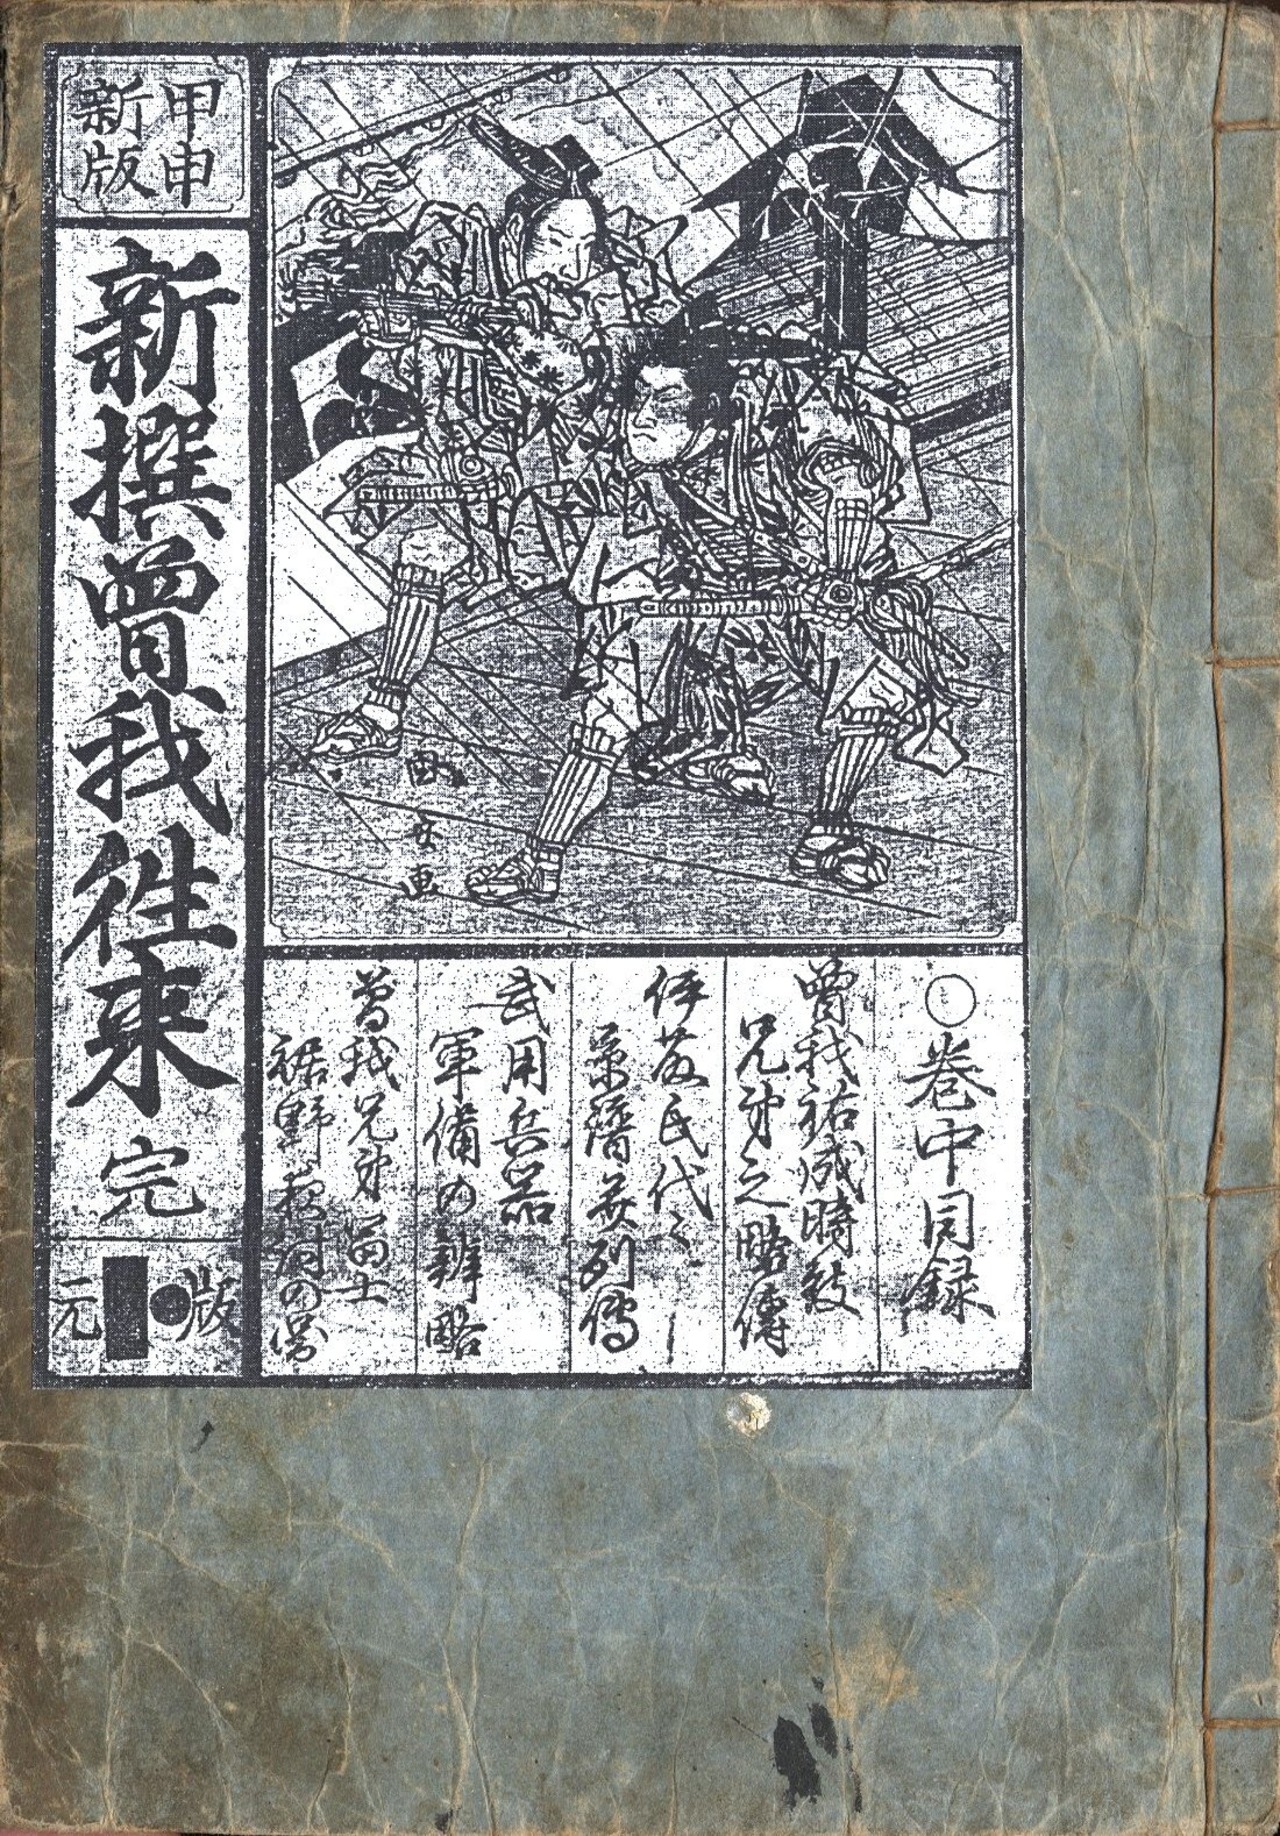 甲申
新版
新撰曽我往来 完
版元
国安画
巻中目録
曽我祐成時致
兄弟之略傳
伊藤氏代々
系譜并列傳
武用兵器
軍備の辨略
曽我兄弟冨士
裾野夜討の